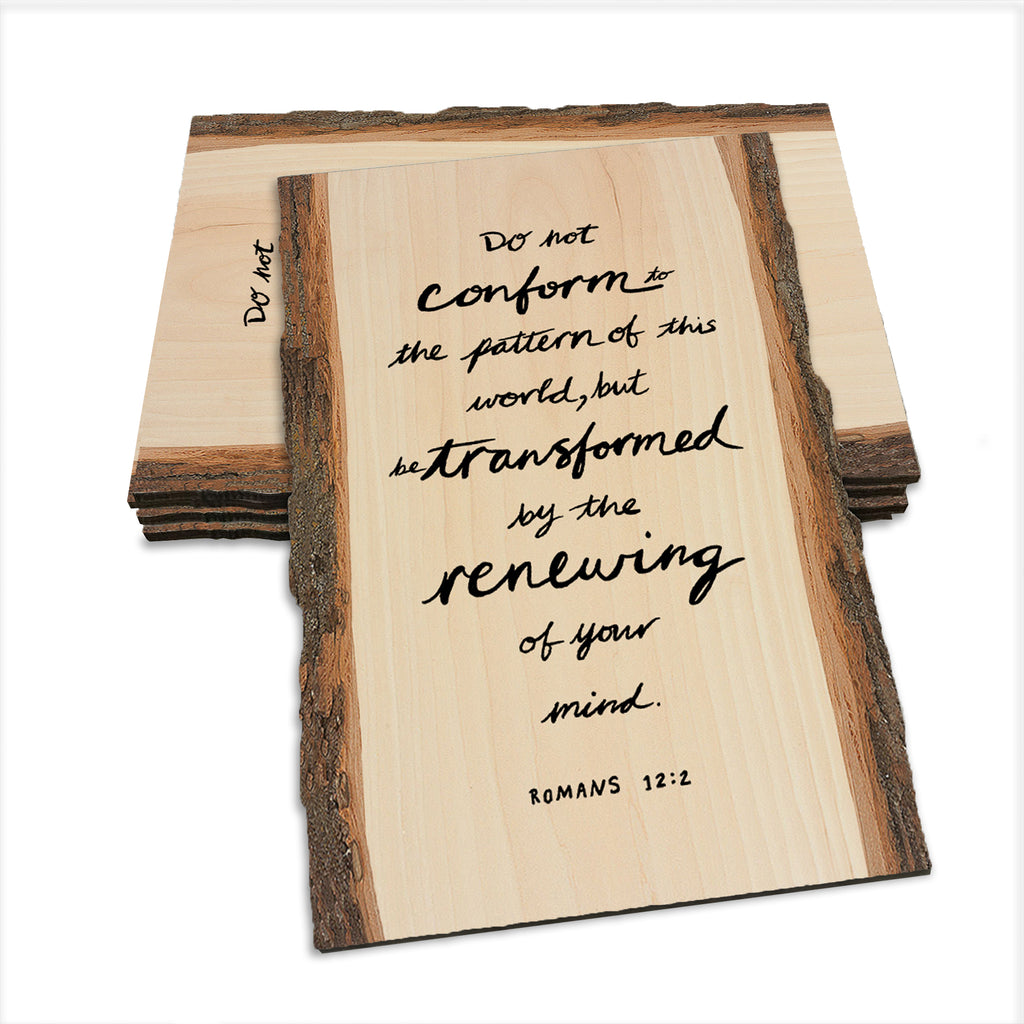 Do not
conform to
the pattern of this
world, but
be transformed
by the
renewing
of your
mind.
ROMANS 12:2
Do not